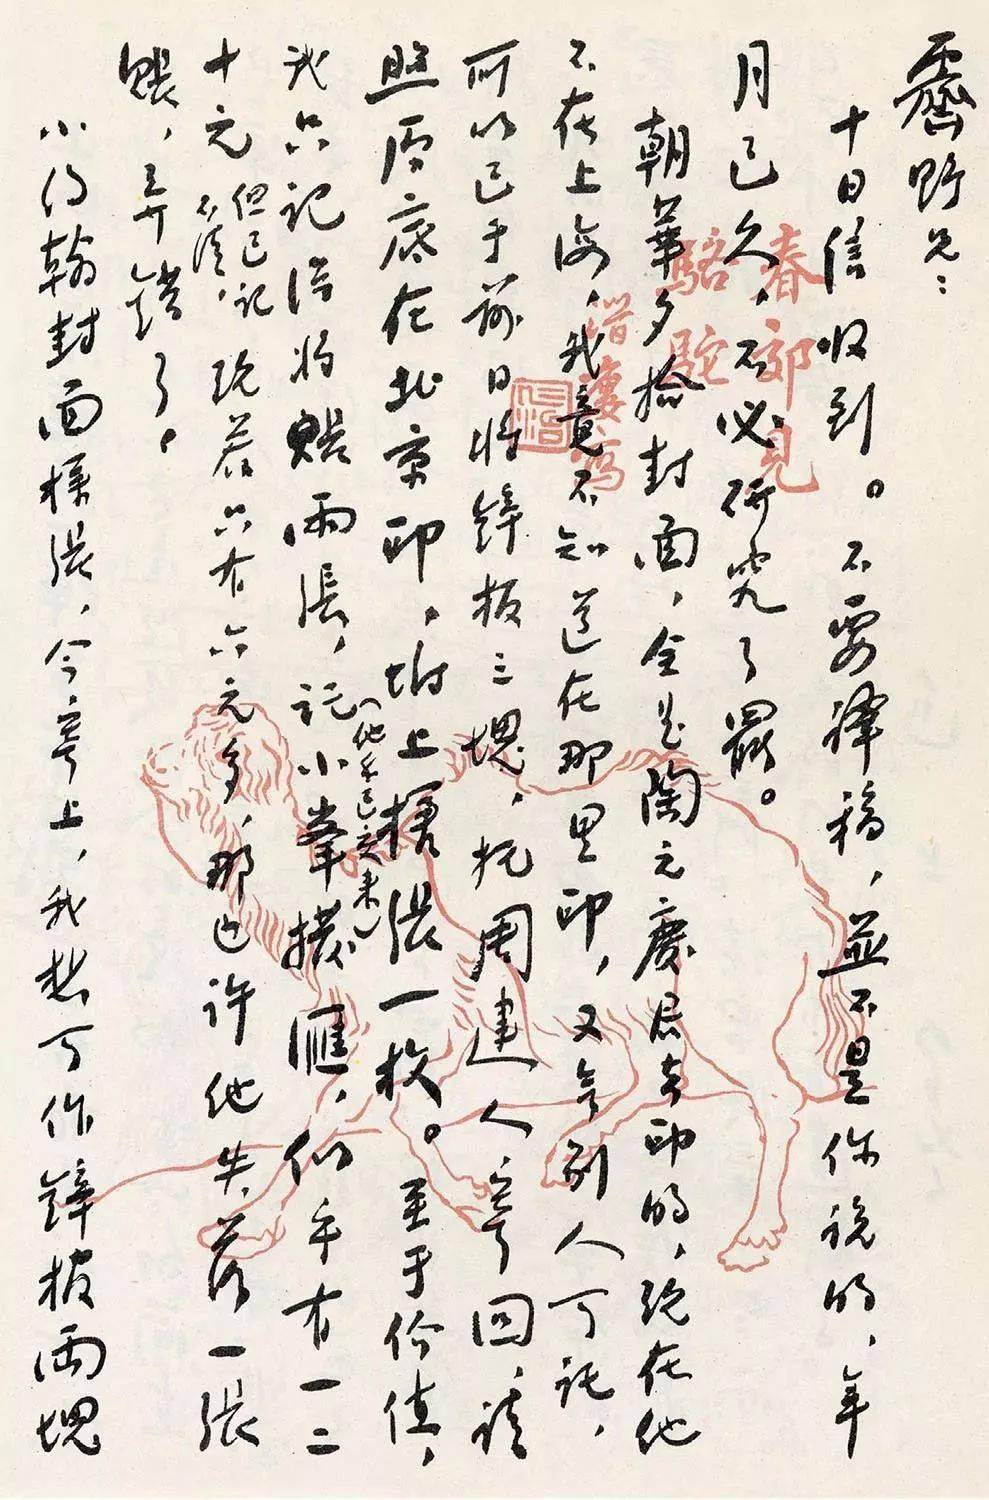 霽野兄：
十日信收到。不要譯稿，並不是你說的，年
月已久，不必研究了罷。
朝華夕拾封面，全是陶元慶君去印的，現在他
不在上海，我竟不知道在那里印，又無別人可託，
所以已于前日將鋅板三塊，托周建人寄回，請
照原底在北京印，附上樣張一枚。至于价值，
我只記得將賬兩張，託小峯撥匯，（他錢已交來）似乎有一二
十元 但已記不清， 現若只有六元多，那也許他失落一張
賬，弄錯了。
小約翰封面樣張，今寄上，我想可作鋅板兩塊
春郊見
駱駝